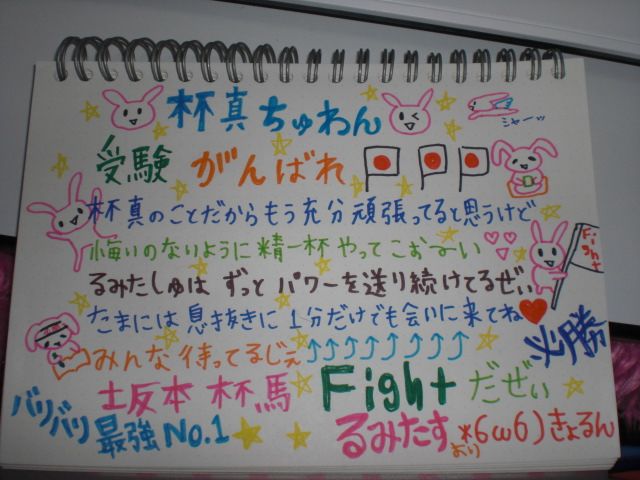 杯真ちゅわん
シャーッ
受験 がんばれ
杯真のことだからもう充分頑張ってると思うけど
悔いのないように精一杯やってこお〜い
Fight
るみたしゅは ずっと パワーを送り続けてるぜぃ
たまには息抜きに1分だけでも会いに来てね♥
みんな待ってるじぇ⤴⤴⤴⤴⤴⤴⤴⤴⤴
必勝
坂本 杯馬 Fight だぜぃ
バリバリ最強No.1
るみたすおり*6ω6)きょるん